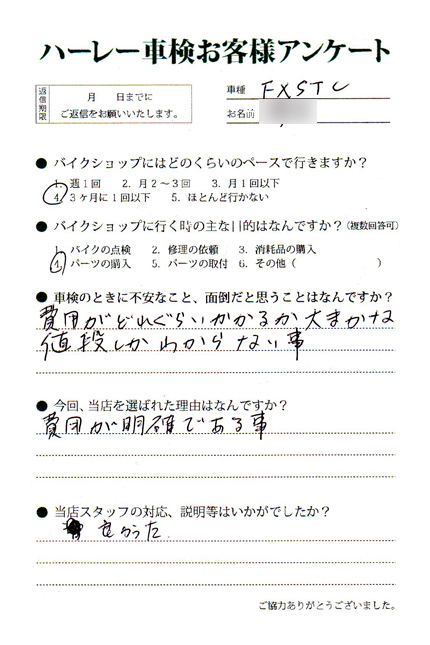 ハーレー車検お客様アンケート
返信期限
月　日までに
ご返信をお願いいたします。
車種 FXSTC
お名前
● バイクショップにはどのくらいのペースで行きますか？
1. 週1回　2. 月2～3回　3. 月1回以下
4. 3ヶ月に1回以下　5. ほとんど行かない
● バイクショップに行く時の主な目的はなんですか？(複数回答可)
1. バイクの点検　2. 修理の依頼　3. 消耗品の購入
4. パーツの購入　5. パーツの取付　6. その他（　　　）
● 車検のときに不安なこと、面倒だと思うことはなんですか？
費用がどれぐらいかかるか大まかな
値段しかわからない事
● 今回、当店を選ばれた理由はなんですか？
費用が明確である事
● 当店スタッフの対応、説明等はいかがでしたか？
良かった
ご協力ありがとうございました。